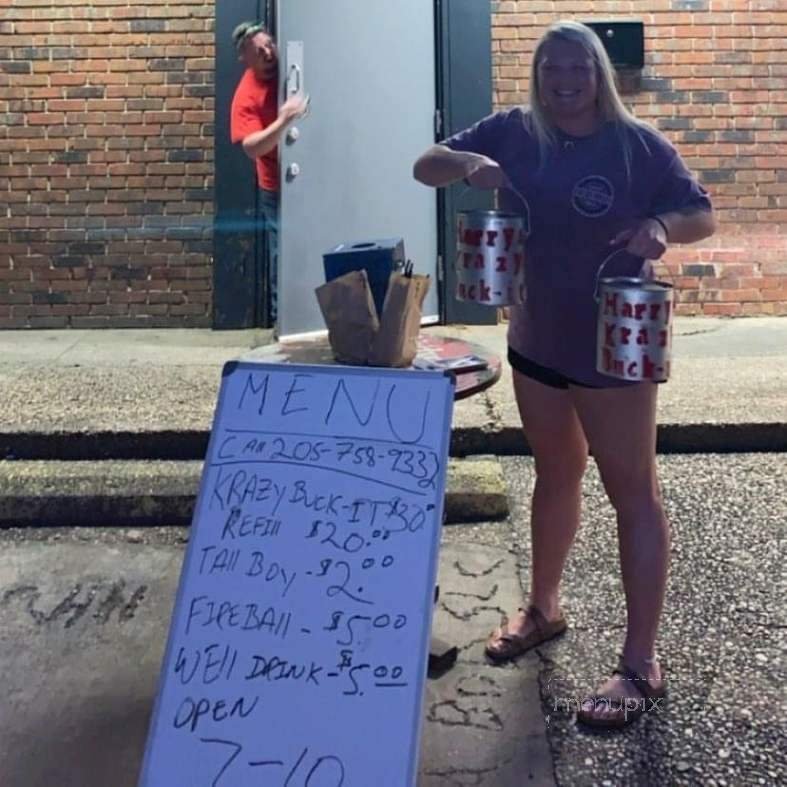 MENU
CAll 205-758-9332
KRAZY BUCK-IT $30⁰
REFIll $20.⁰⁰
TAll BOY - $2.⁰⁰
FIREBAll - $5.00
WEll DRINK - $5.⁰⁰
OPEN
7-10
Harry
Kraz
Buck-
arry
razy
uck-it
menupix